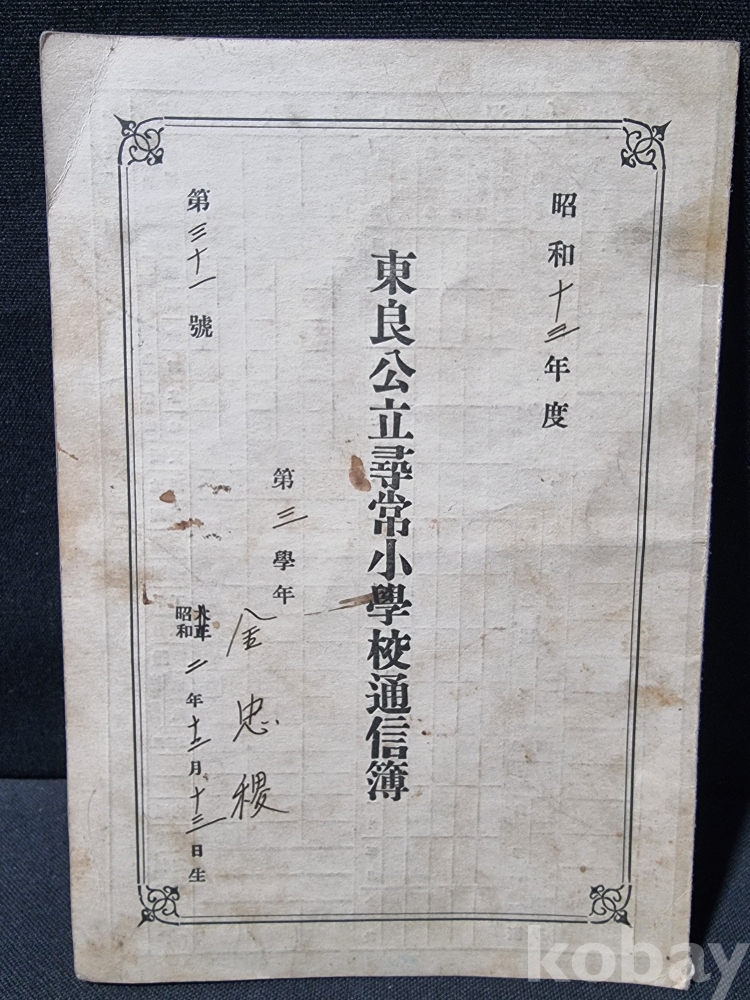 昭和十三年度
東良公立尋常小學校通信簿
第三學年
金忠稷
第三十一號
大正
昭和二年十二月十三日生
kobay